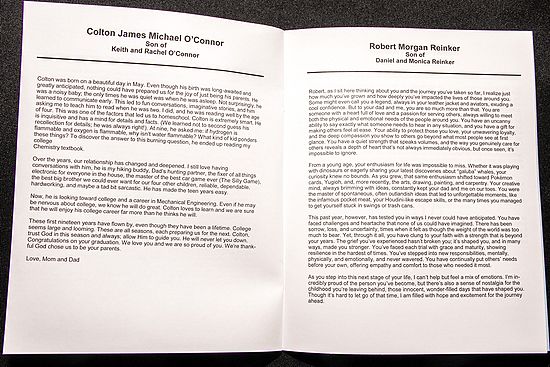 Colton James Michael O'Connor
Son of
Keith and Rachel O'Connor
Colton was born on a beautiful day in May. Even though his birth was long-awaited and
greatly anticipated, nothing could have prepared us for the joy of just being his parents. He
was a noisy baby; the only time he was quiet was when he was asleep. Not surprisingly, he
learned to communicate early. This led to fun conversations, imaginative stories, and him
asking me to teach him to read when he was two. I did, and he was reading well by the age
of four. This was one of the factors that led us to homeschool. Colton is extremely smart. He
is inquisitive and has a mind for details and facts. (We learned not to second guess his
recollection for details; he was always right!). At nine, he asked me: if hydrogen is
flammable and oxygen is flammable, why isn't water flammable? What kind of kid ponders
these things? To discover the answer to this burning question, he ended up reading my
college
Chemistry textbook.
Over the years, our relationship has changed and deepened. I still love having
conversations with him, he is my hiking buddy, Dad's hunting partner, the fixer of all things
electronic for everyone in the house, the master of the best car game ever (The Silly Game),
the best big brother we could ever want for our four other children, reliable, dependable,
hardworking, and maybe a tad bit sarcastic. He has made the teen years easy.
Now, he is looking toward college and a career in Mechanical Engineering. Even if he may
be nervous about college, we know he will do great. Colton loves to learn and we are sure
that he will enjoy his college career far more than he thinks he will.
These first nineteen years have flown by, even though they have been a lifetime. College
seems large and looming. These are all seasons, each preparing us for the next. Colton,
trust God in this season and always; allow him to guide you. He will never let you down.
Congratulations on your graduation. We love you and we are so proud of you. We're thank-
ful God chose us to be your parents.
Love, Mom and Dad
Robert Morgan Reinker
Son of
Daniel and Monica Reinker
Robert, as I sit here thinking about you and the journey you've taken so far, I realize just
how much you've grown and how deeply you've impacted the lives of those around you.
Some might even call you a legend, always in your leather jacket and aviators, exuding a
cool confidence. But to your dad and me, you are so much more than that. You are
someone with a heart full of love and a passion for serving others, always willing to meet
both the physical and emotional needs of the people around you. You have an uncanny
ability to say exactly what someone needs to hear in any situation, and you have a gift for
making others feel at ease. Your ability to protect those you love, your unwavering loyalty,
and the deep compassion you show to others go beyond what most people see at first
glance. You have a quiet strength that speaks volumes, and the way you genuinely care for
others reveals a depth of heart that's not always immediately obvious, but once seen, it's
impossible to ignore.
From a young age, your enthusiasm for life was impossible to miss. Whether it was playing
with dinosaurs or eagerly sharing your latest discoveries about "galuba" whales, your
curiosity knew no bounds. As you grew, that same enthusiasm shifted toward Pokémon
cards, Yugioh, and, more recently, the arts, drawing, painting, and carpentry. Your creative
mind, always brimming with ideas, constantly kept your dad and me on our toes. You were
the master of spontaneous, often outlandish ideas that led to unforgettable moments, like
the infamous pocket meat, your Houdini-like escape skills, or the many times you managed
to get yourself stuck in swings or trash cans.
This past year, however, has tested you in ways I never could have anticipated. You have
faced challenges and heartache that none of us could have imagined. There has been
sorrow, loss, and uncertainty, times when it felt as though the weight of the world was too
much to bear. Yet, through it all, you have clung to your faith with a strength that is beyond
your years. The grief you've experienced hasn't broken you; it's shaped you, and in many
ways, made you stronger. You've faced each trial with grace and maturity, showing
resilience in the hardest of times. You've stepped into new responsibilities, mentally,
physically, and emotionally, and never wavered. You have continually put others' needs
before your own, offering empathy and comfort to those who needed it most.
As you step into this next stage of your life, I can't help but feel a mix of emotions. I'm in-
credibly proud of the person you've become, but there's also a sense of nostalgia for the
childhood you're leaving behind, those innocent, wonder-filled days that have shaped you.
Though it's hard to let go of that time, I am filled with hope and excitement for the journey
ahead.